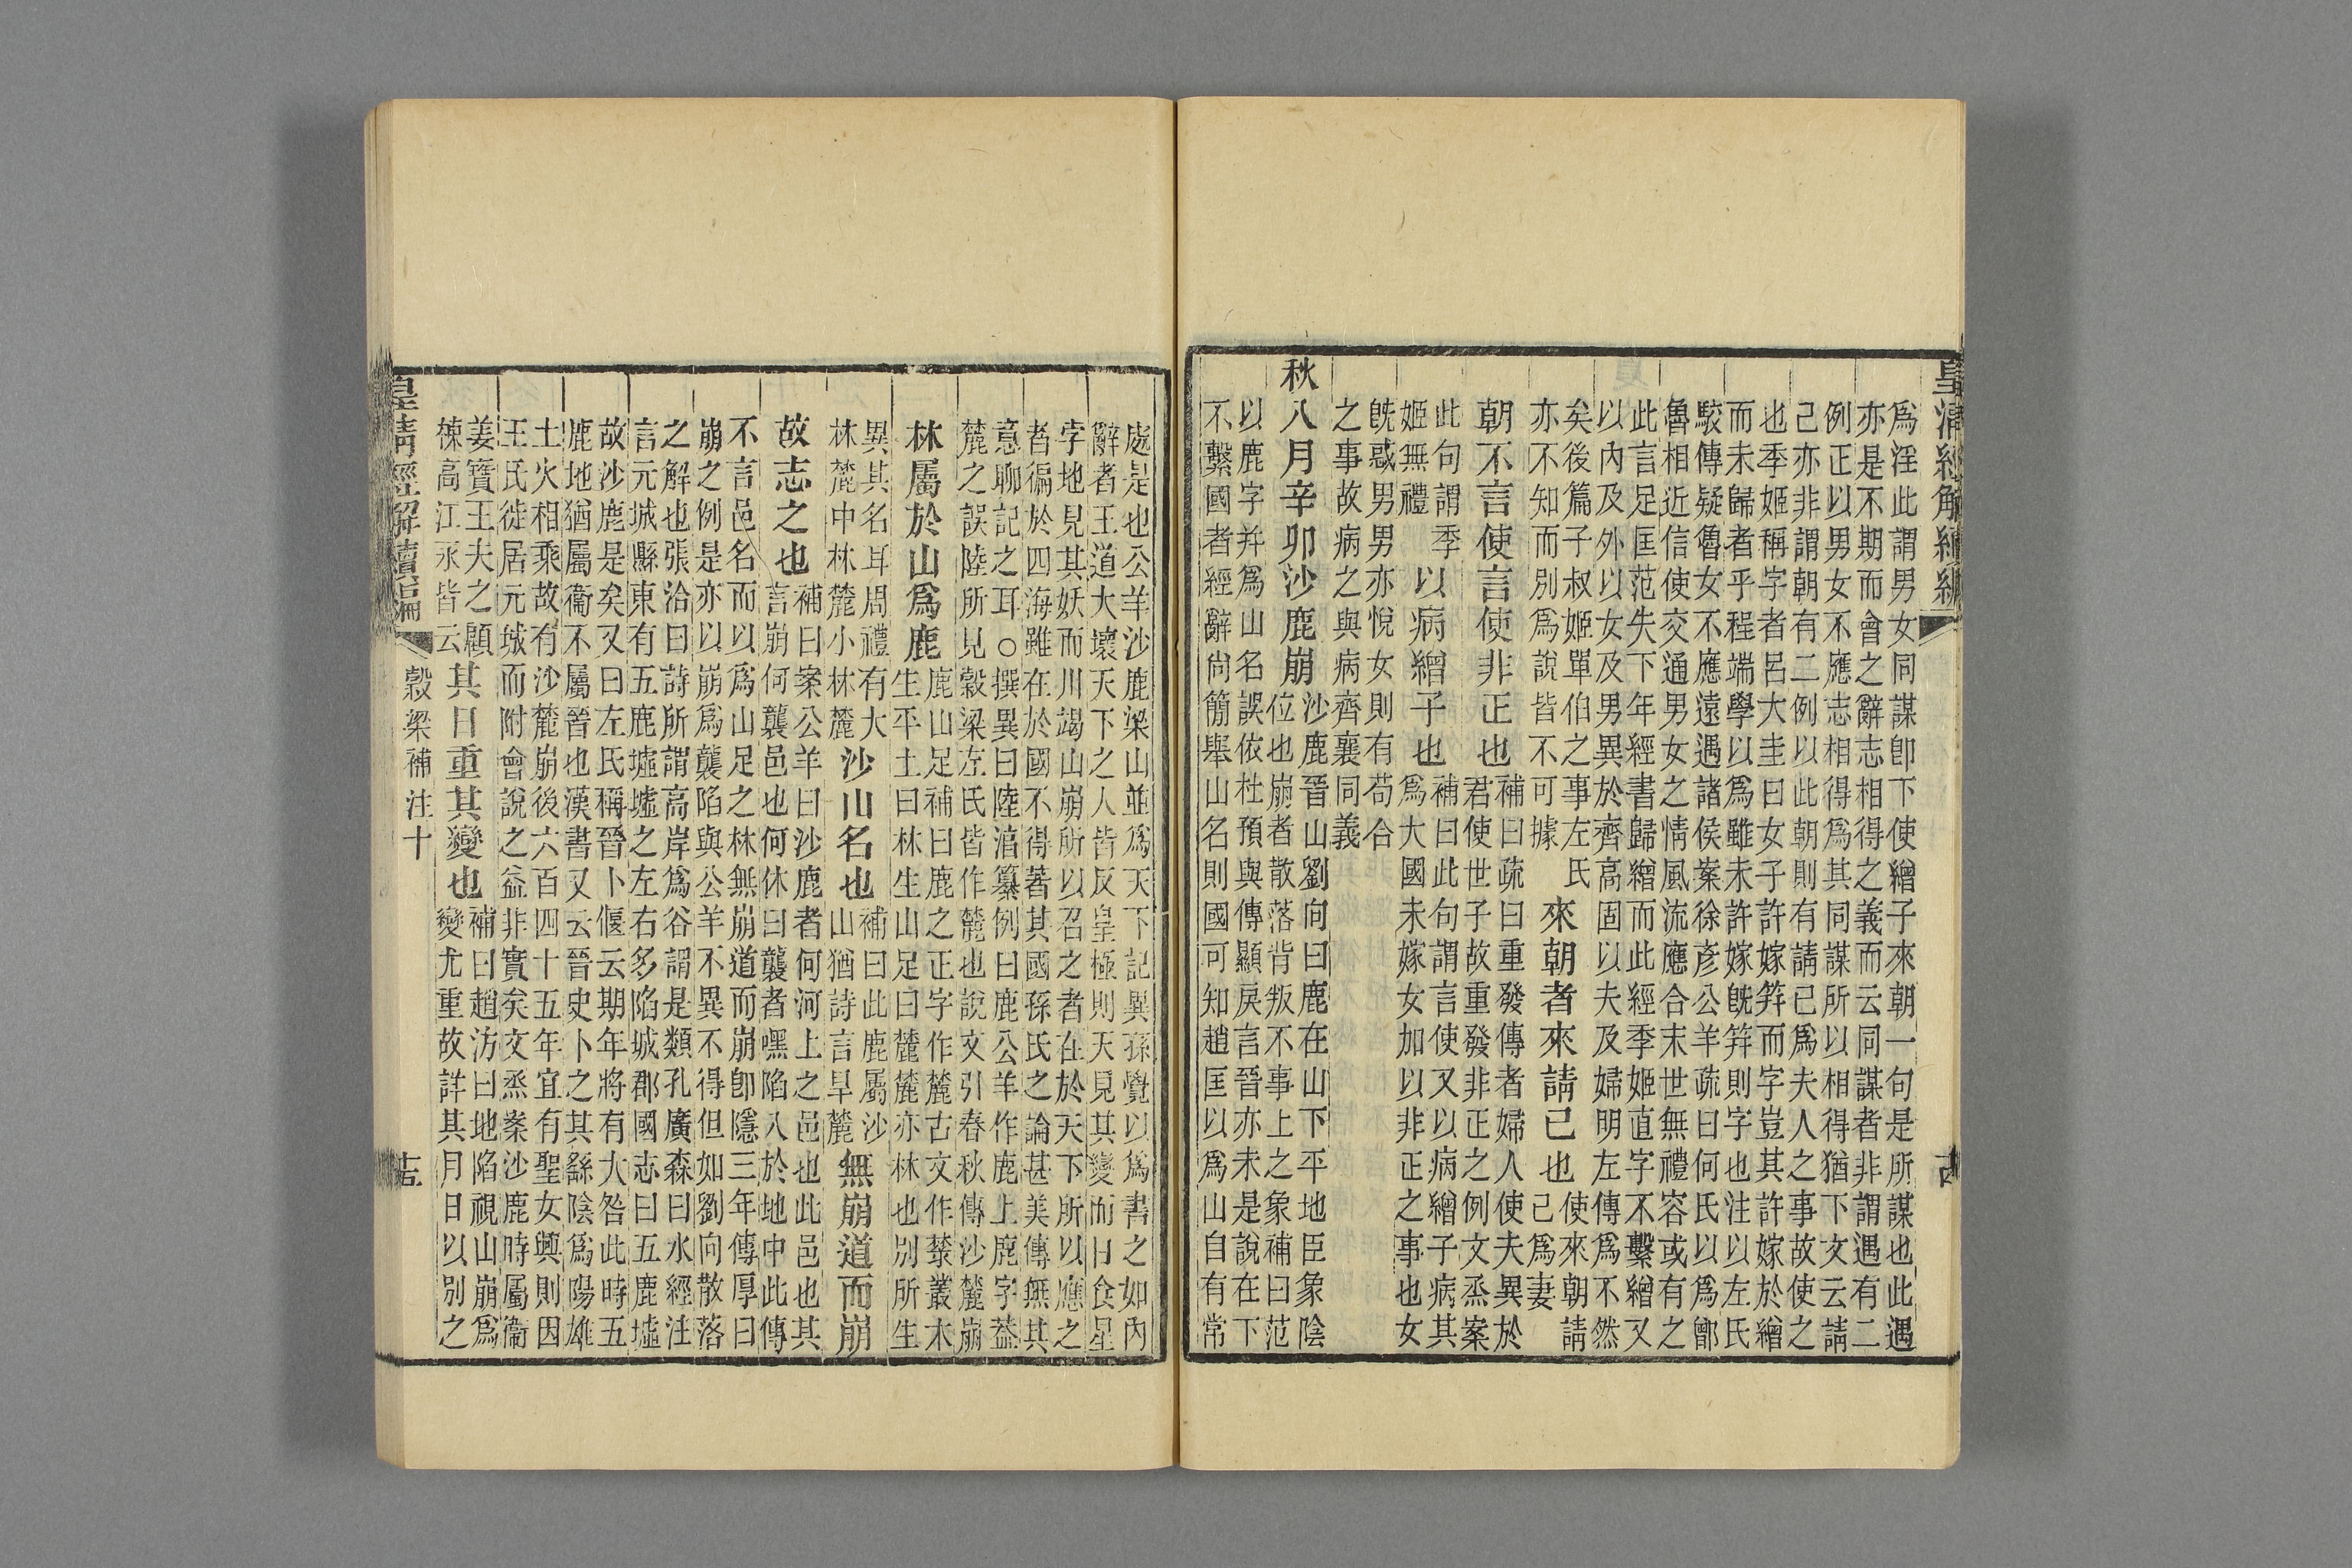 皇清經解續編
爲淫此謂男女同謀卽下使繒子來朝一句是所謀也此遇
亦是不期而會之辭志相得之義而云同謀者非謂遇有二
例正以男女不應志相得爲其同謀所以相得猶下文云請
己亦非謂朝有二例以此朝則有請已爲夫人之事故使之
也季姬稱字者呂大圭曰女子許嫁笄而字豈其許嫁於繒
而未歸者乎程端學以爲雖未許嫁旣笄則字也注以左氏
駮傳疑魯女不應遠遇諸侯案徐彥公羊疏曰何氏以爲鄫
魯相近信使交通男女之情風流應合末世無禮容或有之
此言足匡范失下年經書歸繒而此經季姬直字不繫繒又
以內及外以女及男異於齊高固以夫及婦明左傳爲不然
矣後篇子叔姬單伯之事左氏
亦不知而別爲說皆不可據
來朝者來請已也
使來朝請
己爲妻
朝不言使言使非正也
補曰疏曰重發傳者婦人使夫異於
君使世子故重發非正之例文烝案
此句謂季
姬無禮
以病繒子也
補曰此句謂言使又以病繒子病其
爲大國未嫁女加以非正之事也女
旣惑男男亦悅女則有苟合
之事故病之與病齊襄同義
秋八月辛卯沙鹿崩
沙鹿晉山劉向曰鹿在山下平地臣象陰
位也崩者散落背叛不事上之象補曰范
以鹿字幷爲山名誤依杜預與傳顯戾言晉亦未是說在下
不繫國者經辭尙簡舉山名則國可知趙匡以爲山自有常
處是也公羊沙鹿梁山並爲天下記異孫覺以爲書之如內
辭者王道大壞天下之人皆反皇極則天見其變而日食星
孛地見其妖而川竭山崩所以召之者在於天下所以應之
者徧於四海雖在於國不得著其國孫氏之論甚美傳無其
意聊記之耳○撰異曰陸湻纂例曰鹿公羊作鹿上鹿字葢
麓之誤陸所見穀梁左氏皆作麓也說文引春秋傳沙麓崩
林屬於山爲鹿
鹿山足補曰鹿之正字作麓古文作䔍叢木
生平土曰林生山足曰麓麓亦林也別所生
異其名耳周禮有大
林麓中林麓小林麓
沙山名也
補曰此鹿屬沙
山猶詩言旱麓
無崩道而崩
故志之也
補曰案公羊曰沙鹿者何河上之邑也此邑也其
言崩何襲邑也何休曰襲者嘿陷入於地中此傳
不言邑名而以爲山足之林無崩道而崩卽隱三年傳厚曰
崩之例是亦以崩爲襲陷與公羊不異不得但如劉向散落
之解也張洽曰詩所謂高岸爲谷謂是類孔廣森曰水經注
言元城縣東有五鹿墟墟之左右多陷城郡國志曰五鹿墟
故沙鹿是矣又曰左氏稱晉卜偃云期年將有大咎此時五
鹿地猶屬衞不屬晉也漢書又云晉史卜之其繇陰爲陽雄
土火相乘故有沙麓崩後六百四十五年宜有聖女興則因
王氏徙居元城而附會說之益非實矣文烝案沙鹿時屬衞
姜寶王夫之顧
棟高江永皆云
其日重其變也
補曰趙汸曰地陷視山崩爲
變尤重故詳其月日以別之
皇清經解續編
穀梁補注十